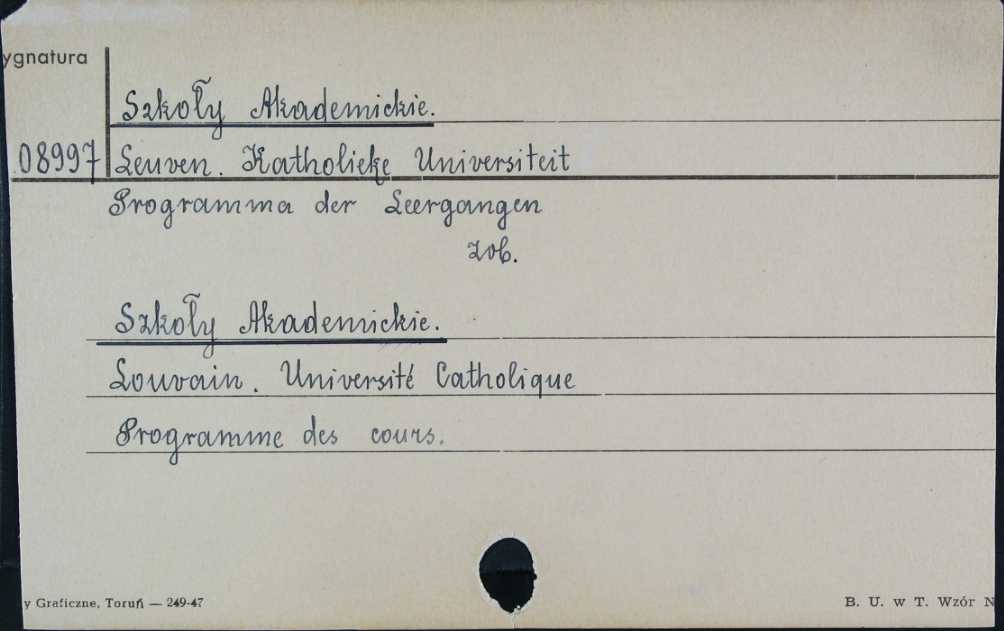 ygnatura
Szkoły Akademickie.
08997 Leuven. Katholieke Universiteit
Programma der Leergangen
zob.
Szkoły Akademickie.
Louvain. Université Catholique
Programme des cours.
y Graficzne, Toruń — 249-47
B. U. w T. Wzór N